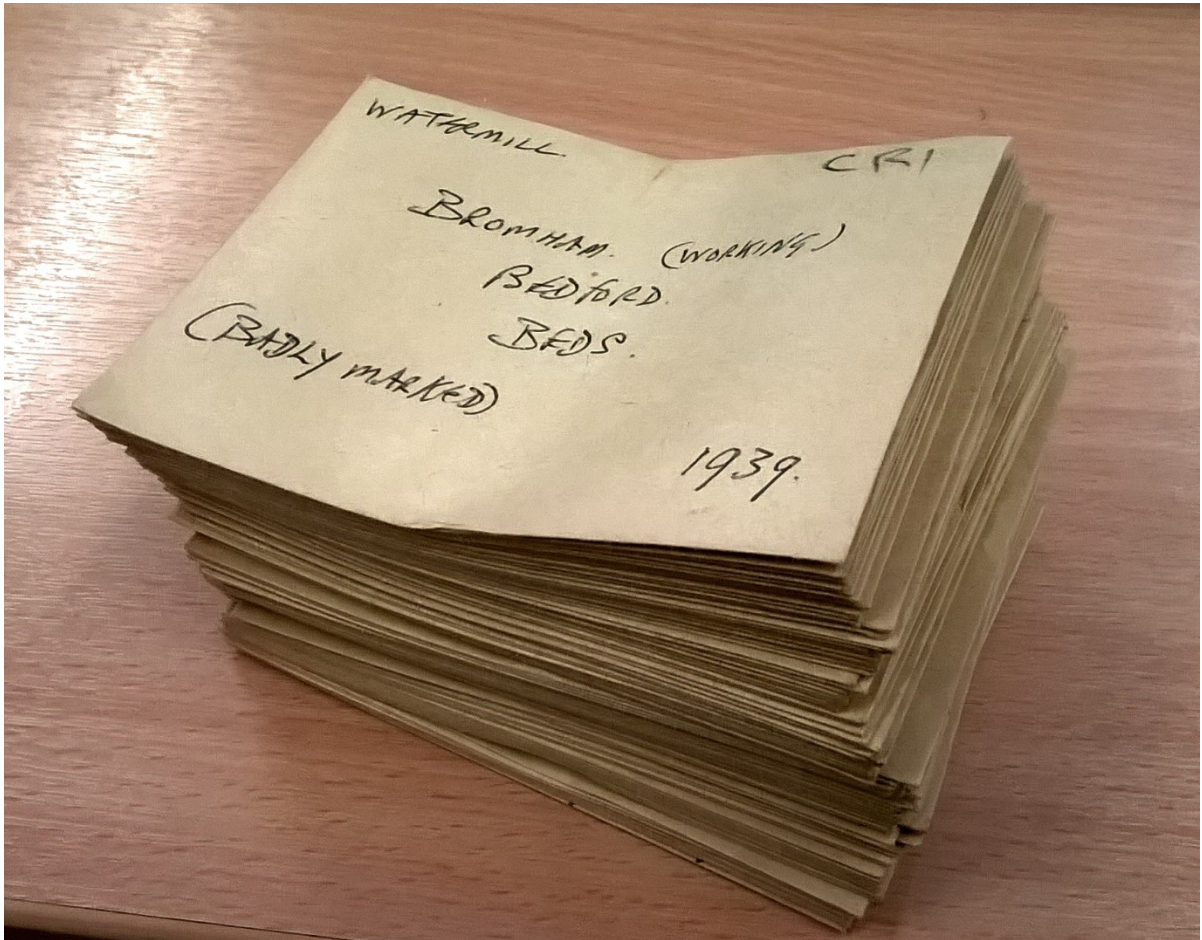 WATERMILL. CR1
BROMHAM. (WORKING)
BEDFORD.
BEDS.
(BADLY MARKED)
1939.